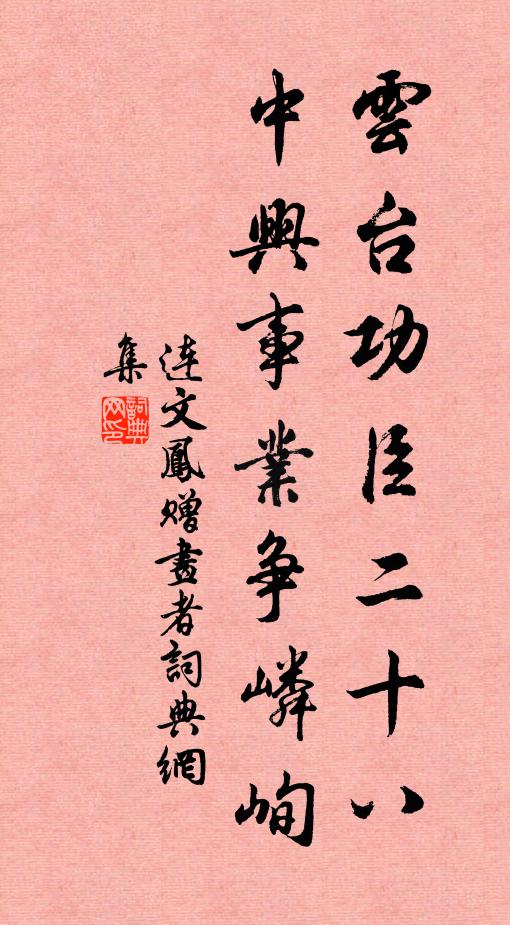 雲台功臣二十八
中興事業争嶙峋
連文鳳贈畫者詞典網
集
詞典
网印